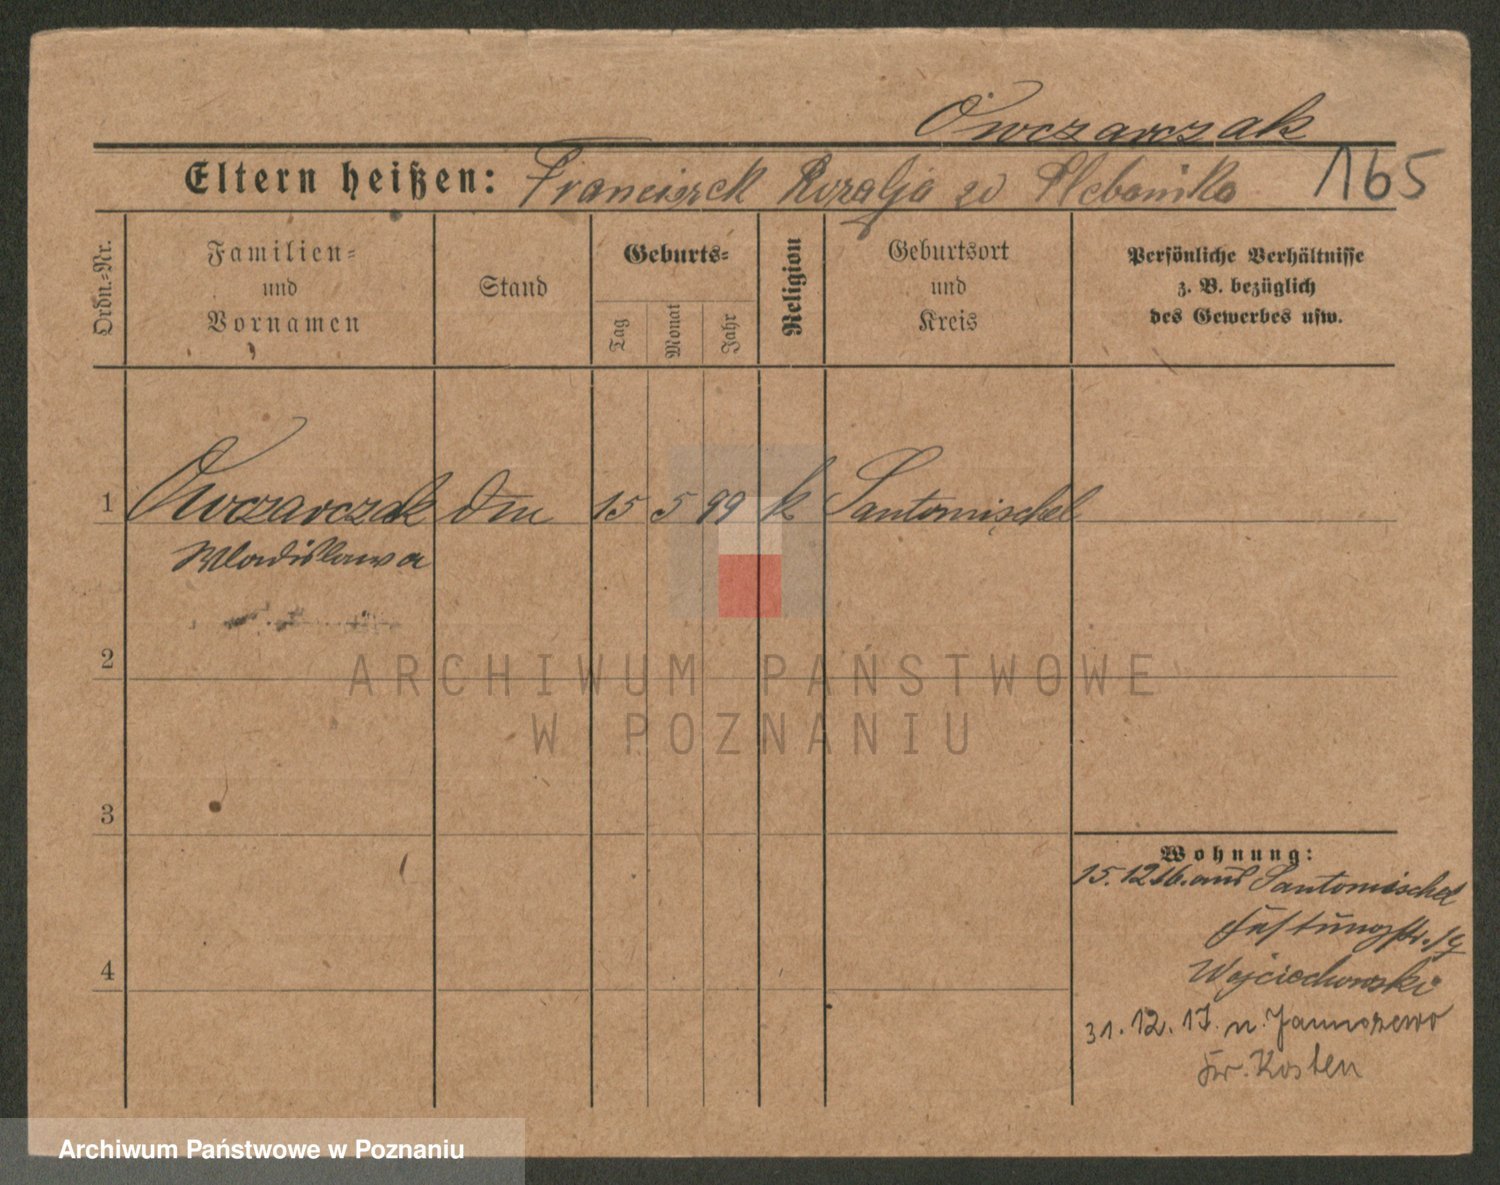 Owczarczak
Eltern heißen: Franciszek Rozalja
165
Ordn.=Nr.
Familien=
und
Vornamen
Stand
Geburts=
Tag
Monat
Jahr
Religion
Geburtsort
und
Kreis
Persönliche Verhältnisse
z. B. bezüglich
des Gewerbes usw.
1 Owczarczak dm 15 5 99 k Santomischel
Wladislawa
2
ARCHIWUM PAŃSTWOWE
W POZNANIU
3
Wohnung:
15.12.16. aus Santomischel
Festungstr.
Wojciechowski
4
31.12.17. n.
Kr. Kosten
Archiwum Państwowe w Poznaniu